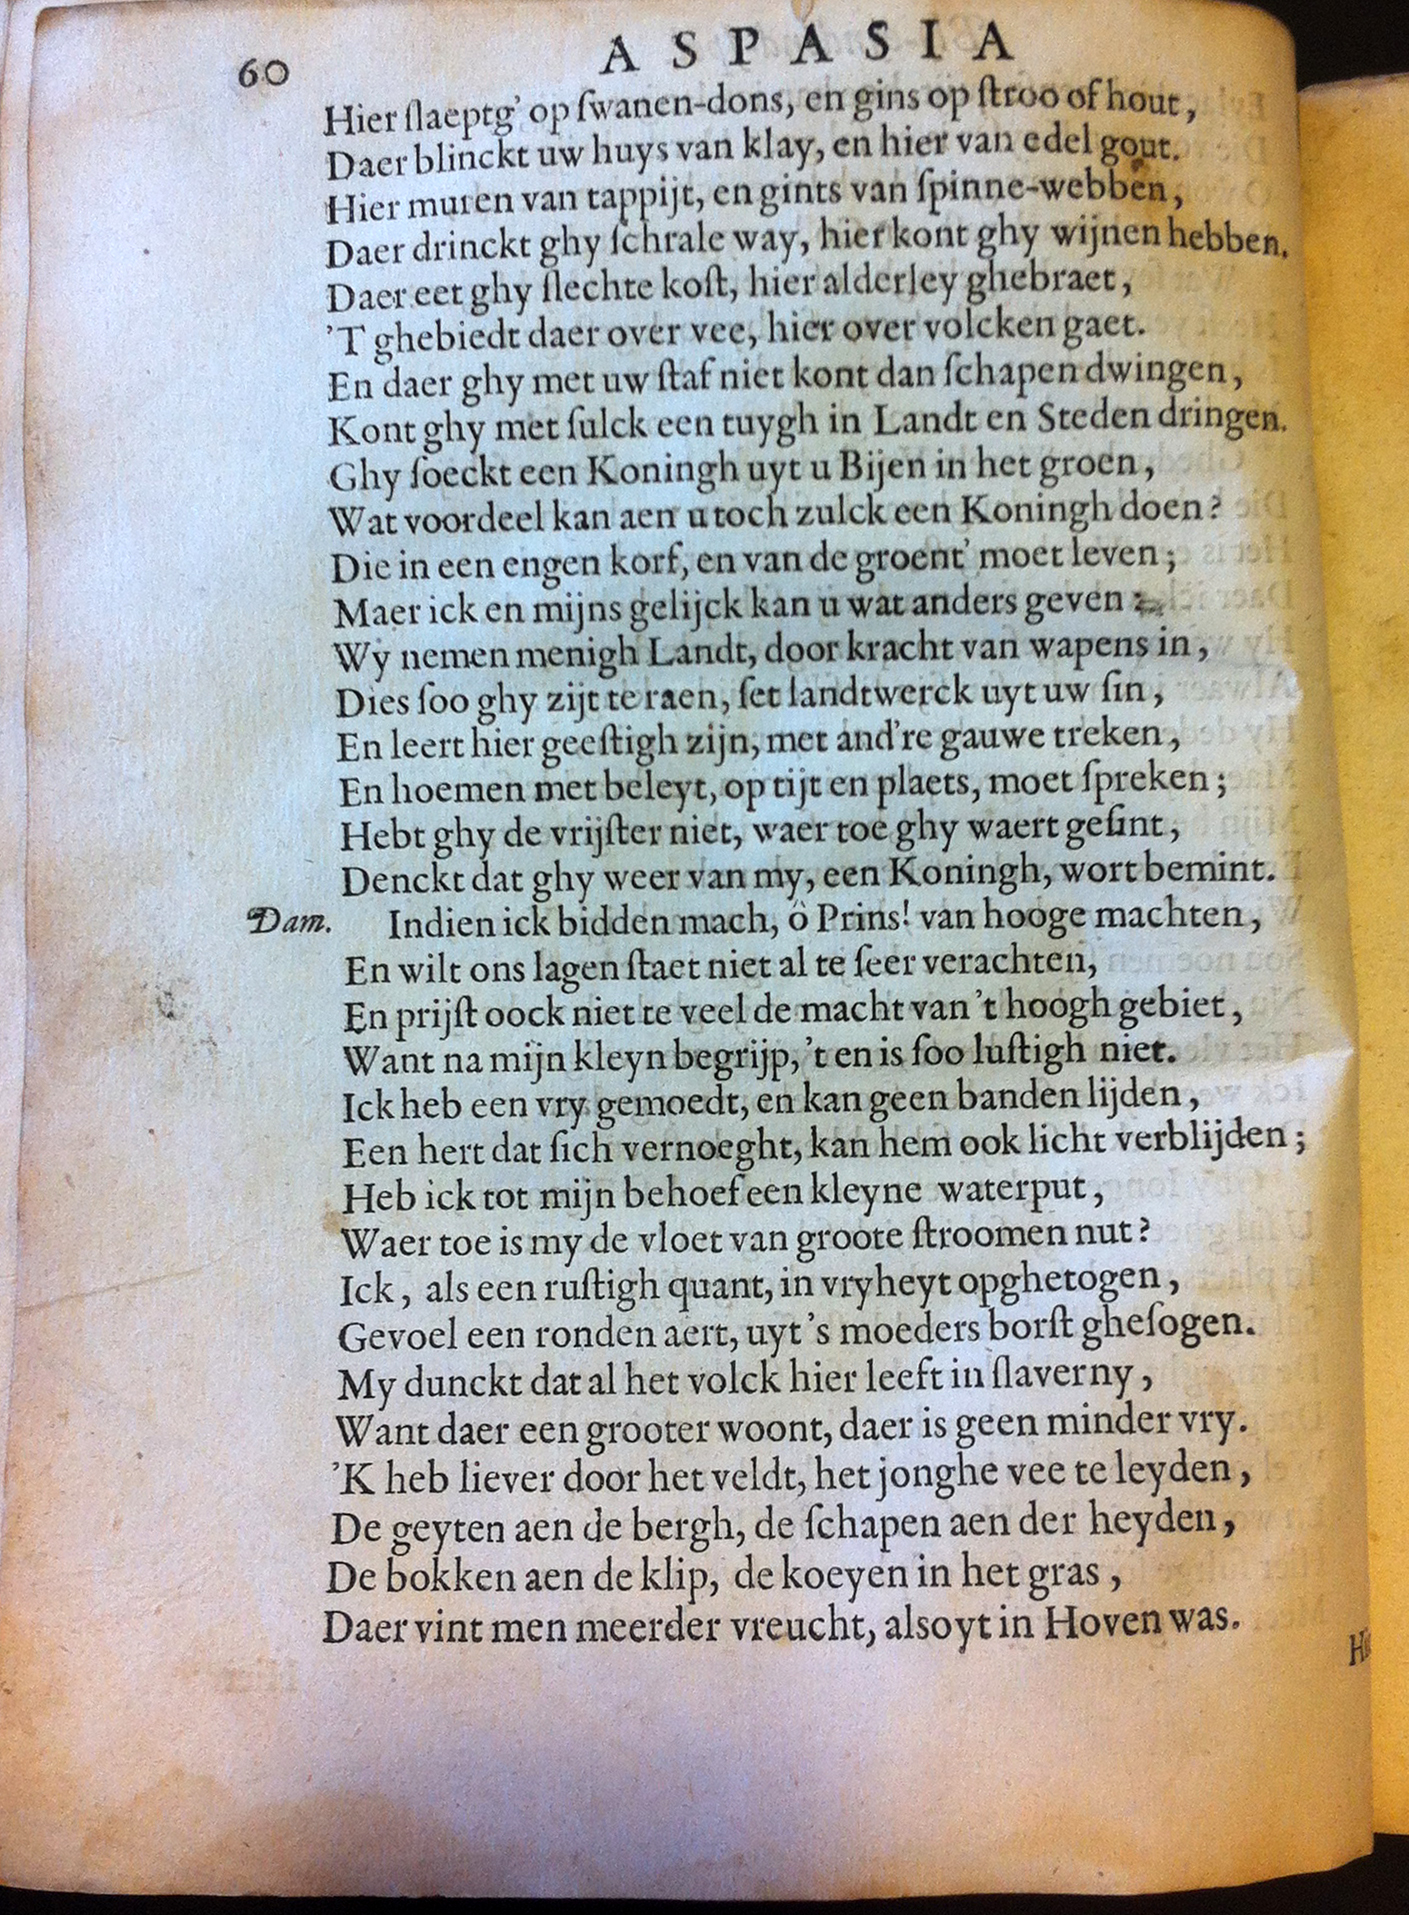 60
ASPASIA
Hier ſlaeptg' op ſwanen-dons, en gins op ſtroo of hout,
Daer blinckt uw huys van klay, en hier van edel gout.
Hier muren van tappijt, en gints van ſpinne-webben,
Daer drinckt ghy ſchrale way, hier kont ghy wijnen hebben.
Daer eet ghy ſlechte koſt, hier alderley ghebraet,
'T ghebiedt daer over vee, hier over volcken gaet.
En daer ghy met uw ſtaf niet kont dan ſchapen dwingen,
Kont ghy met ſulck een tuygh in Landt en Steden dringen.
Ghy ſoeckt een Koningh uyt u Bijen in het groen,
Wat voordeel kan aen u toch zulck een Koningh doen?
Die in een engen korf, en van de groent' moet leven;
Maer ick en mijns gelijck kan u wat anders geven:
Wy nemen menigh Landt, door kracht van wapens in,
Dies ſoo ghy zijt te raen, ſet landtwerck uyt uw ſin,
En leert hier geeſtigh zijn, met and're gauwe treken,
En hoemen met beleyt, op tijt en plaets, moet ſpreken;
Hebt ghy de vrijſter niet, waer toe ghy waert geſint,
Denckt dat ghy weer van my, een Koningh, wort bemint.
Dam. Indien ick bidden mach, ô Prins! van hooge machten,
En wilt ons lagen ſtaet niet al te ſeer verachten,
En prijſt oock niet te veel de macht van 't hoogh gebiet,
Want na mijn kleyn begrijp, 't en is ſoo luſtigh niet.
Ick heb een vry gemoedt, en kan geen banden lijden,
Een hert dat ſich vernoeght, kan hem ook licht verblijden;
Heb ick tot mijn behoef een kleyne waterput,
Waer toe is my de vloet van groote ſtroomen nut?
Ick, als een ruſtigh quant, in vryheyt opghetogen,
Gevoel een ronden aert, uyt 's moeders borſt gheſogen.
My dunckt dat al het volck hier leeft in ſlaverny,
Want daer een grooter woont, daer is geen minder vry.
'K heb liever door het veldt, het jonghe vee te leyden,
De geyten aen de bergh, de ſchapen aen der heyden,
De bokken aen de klip, de koeyen in het gras,
Daer vint men meerder vreucht, alsoyt in Hoven was.